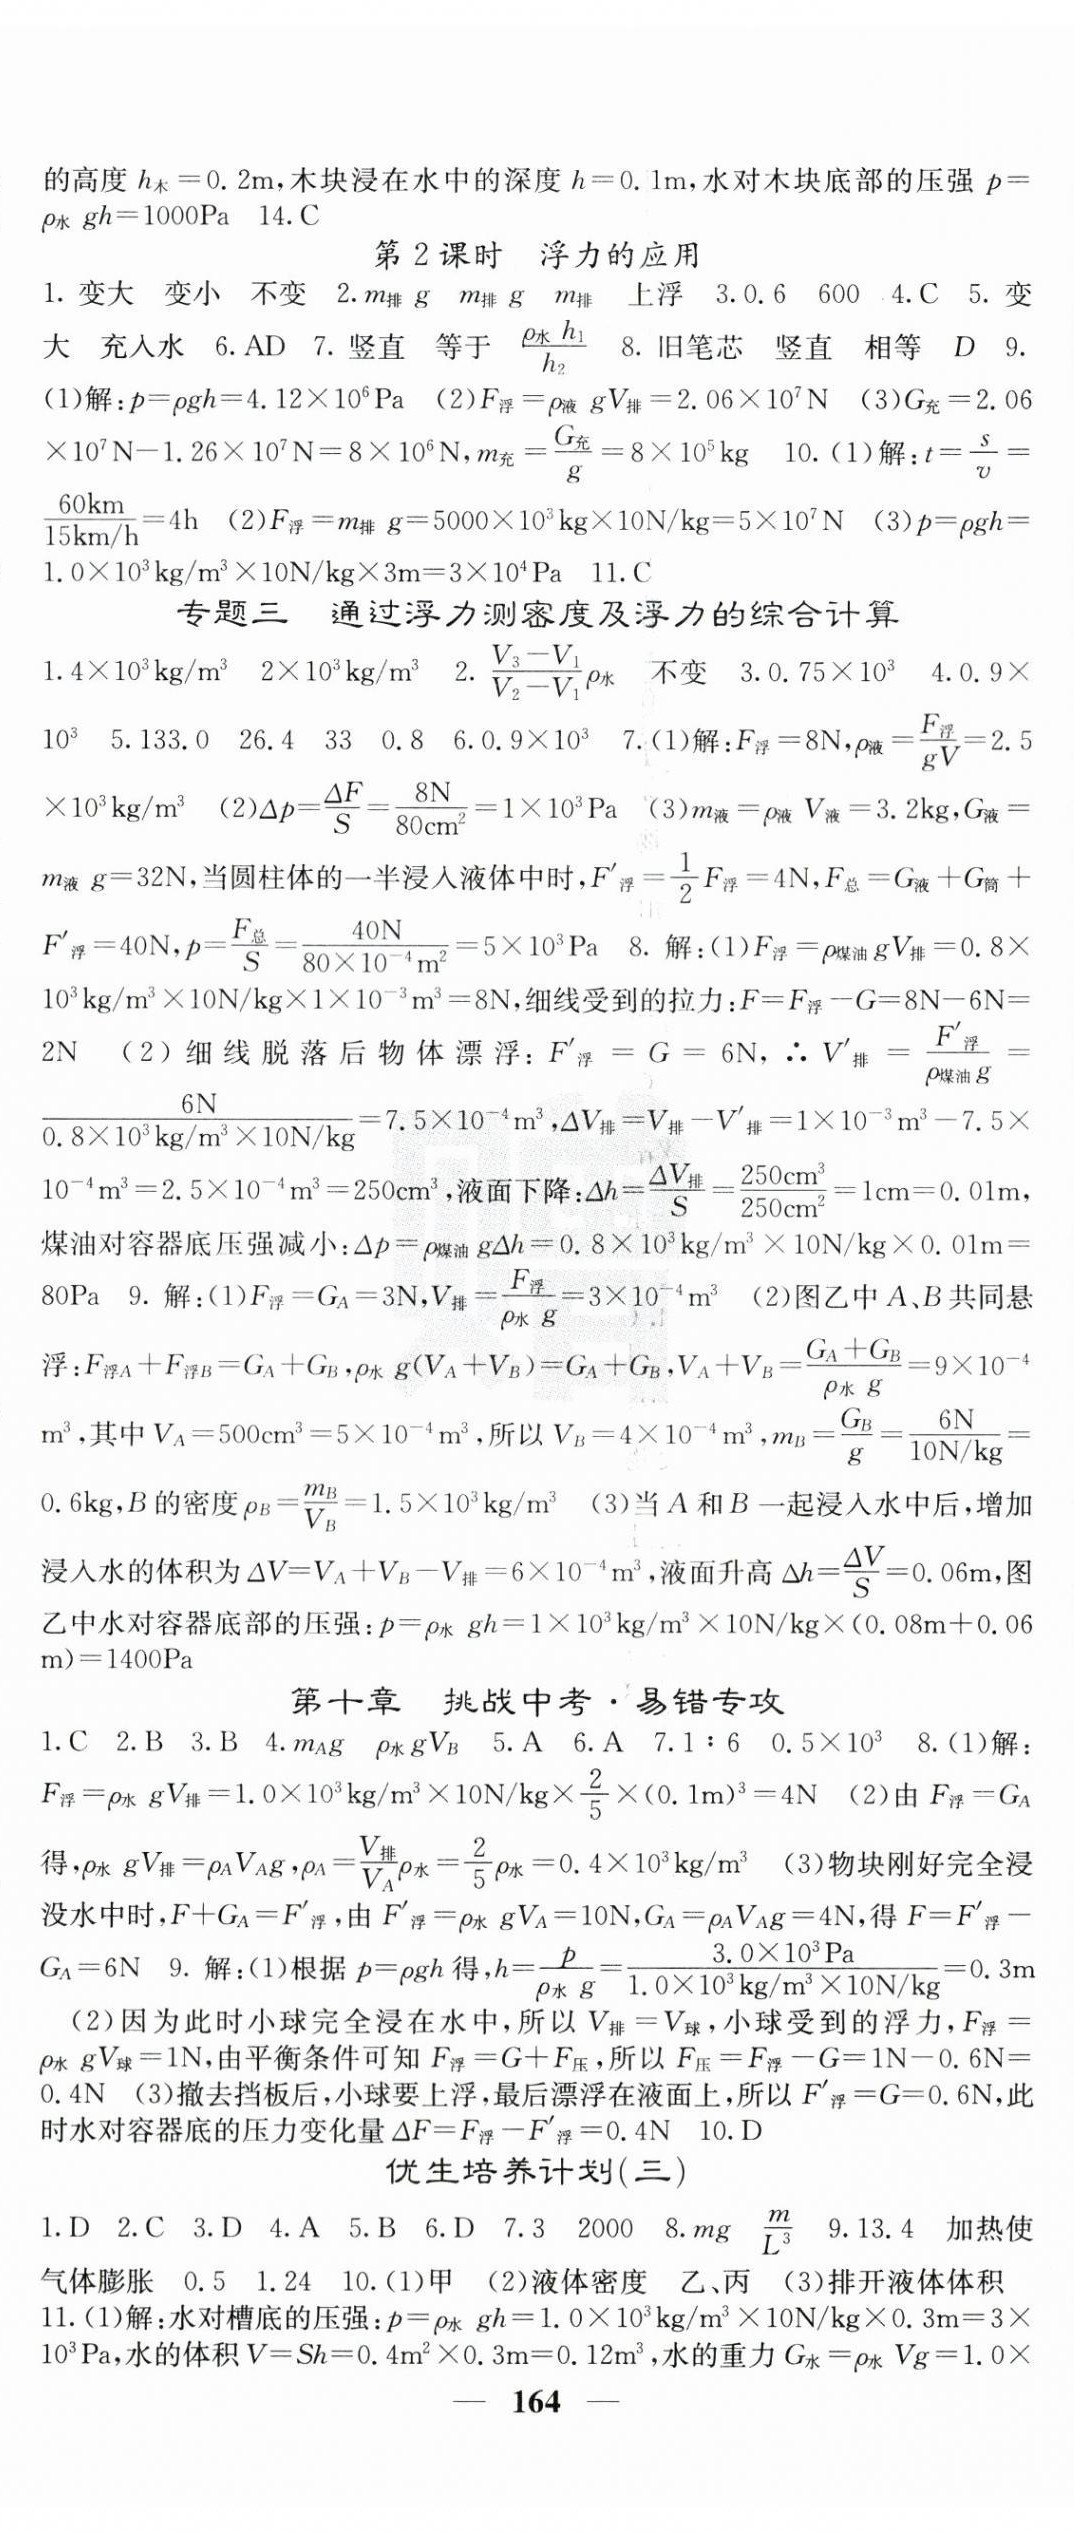 的高度 h木=0.2m,木块浸在水中的深度 h=0.1m,水对木块底部的压强 p=
ρ水 gh=1000Pa 14.C
第2课时 浮力的应用
1. 变大 变小 不变 2.m排 g m排 g m排 上浮 3.0.6 600 4.C 5. 变
大 充入水 6.AD 7. 竖直 等于 ρ水 h₁/h₂ 8. 旧笔芯 竖直 相等 D 9.
(1)解:p=ρgh=4.12×10⁶Pa (2)F浮=ρ液 gV排=2.06×10⁷N (3)G充=2.06
×10⁷N-1.26×10⁷N=8×10⁶N,m充=G充/g=8×10⁵kg 10.(1)解:t=s/v=
60km/15km/h=4h (2)F浮=m排 g=5000×10³kg×10N/kg=5×10⁷N (3)p=ρgh=
1.0×10³kg/m³×10N/kg×3m=3×10⁴Pa 11.C
专题三 通过浮力测密度及浮力的综合计算
1.4×10³kg/m³ 2×10³kg/m³ 2. (V₃-V₁)/(V₂-V₁)ρ水 不变 3.0.75×10³ 4.0.9×
10³ 5.133.0 26.4 33 0.8 6.0.9×10³ 7.(1)解:F浮=8N,ρ液=F浮/gV=2.5
×10³kg/m³ (2)Δp=ΔF/S=8N/80cm²=1×10³Pa (3)m液=ρ液 V液=3.2kg,G液=
m液 g=32N,当圆柱体的一半浸入液体中时,F′浮=1/2F浮=4N,F总=G液+G筒+
F′浮=40N,p=F总/S=40N/80×10⁻⁴m²=5×10³Pa 8. 解:(1)F浮=ρ煤油gV排=0.8×
10³kg/m³×10N/kg×1×10⁻³m³=8N,细线受到的拉力:F=F浮-G=8N-6N=
2N (2)细线脱落后物体漂浮:F′浮=G=6N,∴V′排=F′浮/ρ煤油g=
6N/0.8×10³kg/m³×10N/kg=7.5×10⁻⁴m³,ΔV排=V排-V′排=1×10⁻³m³-7.5×
10⁻⁴m³=2.5×10⁻⁴m³=250cm³,液面下降:Δh=ΔV排/S=250cm³/250cm²=1cm=0.01m,
煤油对容器底压强减小:Δp=ρ煤油 gΔh=0.8×10³kg/m³×10N/kg×0.01m=
80Pa 9. 解:(1)F浮=GA=3N,V排=F浮/ρ水 g=3×10⁻⁴m³ (2)图乙中A、B共同悬
浮:F浮A+F浮B=GA+GB,ρ水 g(VA+VB)=GA+GB,VA+VB=(GA+GB)/ρ水 g=9×10⁻⁴
m³,其中VA=500cm³=5×10⁻⁴m³,所以VB=4×10⁻⁴m³,mB=GB/g=6N/10N/kg=
0.6kg,B的密度ρB=mB/VB=1.5×10³kg/m³ (3)当A和B一起浸入水中后,增加
浸入水的体积为ΔV=VA+VB-V排=6×10⁻⁴m³,液面升高Δh=ΔV/S=0.06m,图
乙中水对容器底部的压强:p=ρ水 gh=1×10³kg/m³×10N/kg×(0.08m+0.06
m)=1400Pa
第十章 挑战中考·易错专攻
1.C 2.B 3.B 4.mAg ρ水gVB 5.A 6.A 7.1∶6 0.5×10³ 8.(1)解:
F浮=ρ水 gV排=1.0×10³kg/m³×10N/kg×2/5×(0.1m)³=4N (2)由F浮=GA
得,ρ水 gV排=ρAVAg,ρA=V排/VAρ水=2/5ρ水=0.4×10³kg/m³ (3)物块刚好完全浸
没水中时,F+GA=F′浮,由F′浮=ρ水 gVA=10N,GA=ρAVAg=4N,得F=F′浮-
GA=6N 9. 解:(1)根据p=ρgh得,h=p/ρ水 g=3.0×10³Pa/1.0×10³kg/m³×10N/kg=0.3m
(2)因为此时小球完全浸在水中,所以V排=V球,小球受到的浮力,F浮=
ρ水 gV球=1N,由平衡条件可知F浮=G+F压,所以F压=F浮-G=1N-0.6N=
0.4N (3)撤去挡板后,小球要上浮,最后漂浮在液面上,所以F′浮=G=0.6N,此
时水对容器底的压力变化量ΔF=F浮-F′浮=0.4N 10.D
优生培养计划(三)
1.D 2.C 3.D 4.A 5.B 6.D 7.3 2000 8.mg m/L³ 9.13.4 加热使
气体膨胀 0.5 1.24 10.(1)甲 (2)液体密度 乙、丙 (3)排开液体体积
11.(1)解:水对槽底的压强:p=ρ水 gh=1.0×10³kg/m³×10N/kg×0.3m=3×
10³Pa,水的体积V=Sh=0.4m²×0.3m=0.12m³,水的重力G水=ρ水 Vg=1.0×
— 164 —